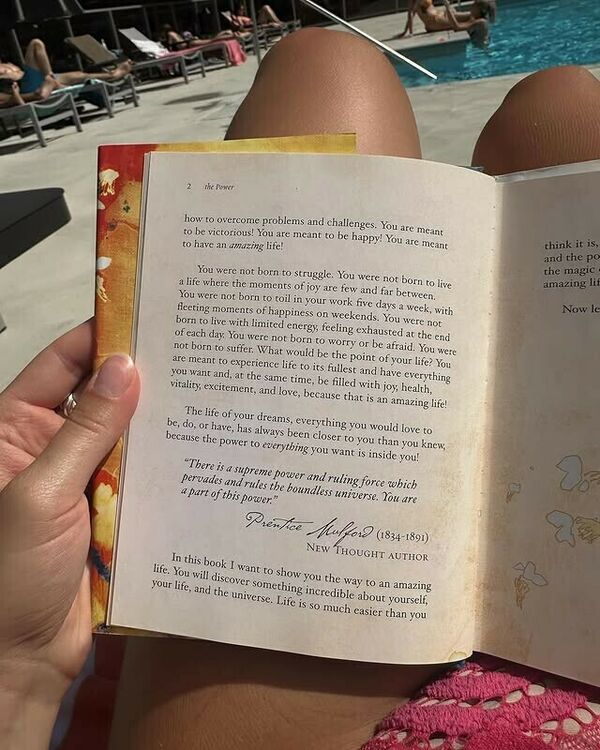 2 the Power
how to overcome problems and challenges. You are meant
to be victorious! You are meant to be happy! You are meant
to have an amazing life!
You were not born to struggle. You were not born to live
a life where the moments of joy are few and far between.
You were not born to toil in your work five days a week, with
fleeting moments of happiness on weekends. You were not
born to live with limited energy, feeling exhausted at the end
of each day. You were not born to worry or be afraid. You were
not born to suffer. What would be the point of your life? You
are meant to experience life to its fullest and have everything
you want and, at the same time, be filled with joy, health,
vitality, excitement, and love, because that is an amazing life!
The life of your dreams, everything you would love to
be, do, or have, has always been closer to you than you knew,
because the power to everything you want is inside you!
“There is a supreme power and ruling force which
pervades and rules the boundless universe. You are
a part of this power.”
Prentice Mulford (1834-1891)
NEW THOUGHT AUTHOR
In this book I want to show you the way to an amazing
life. You will discover something incredible about yourself,
your life, and the universe. Life is so much easier than you
think it is,
and the po
the magic
amazing lif
Now le